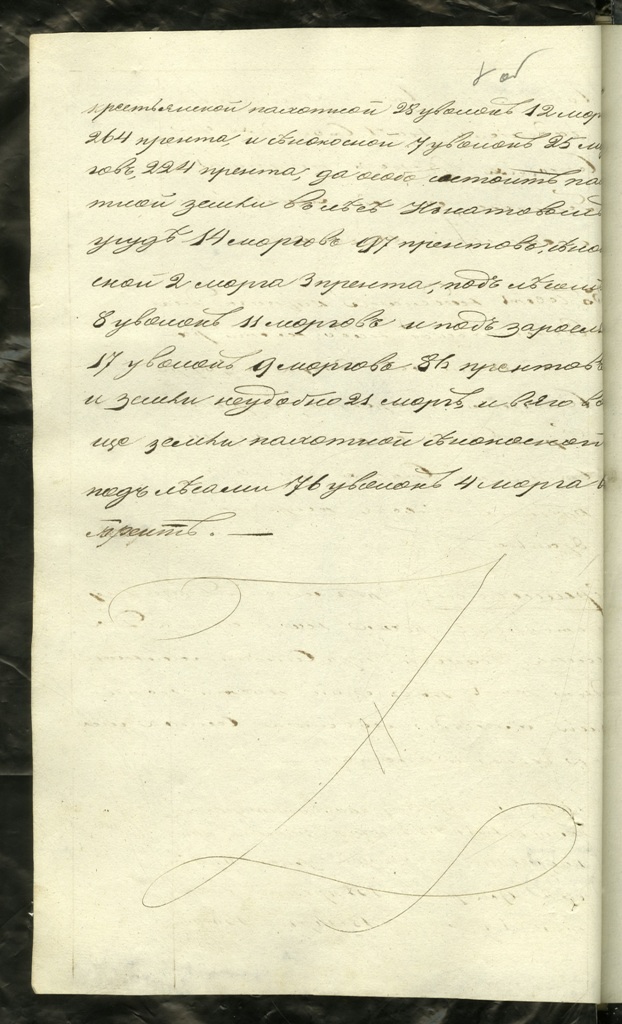 8 об
крестьянской пахотной 28 уволокъ 12 мор
264 прента, и сѣнокосной 7 уволокъ 25 мо
говъ, 224 прента, да особо состоитъ па
тной земли въ лѣсѣ
угудѣ 14 морговъ 97 прентовъ, сѣно
сной 2 морга 3 прента, подъ лѣсомъ
8 уволокъ 11 морговъ и подъ заросл
17 уволокъ 9 морговъ 86 прентовъ
и земли неудобно 21 моргъ, и всяго во
ще земли пахотной сѣнокосной
подъ лѣсами 76 уволокъ 4 морга
прентъ. —